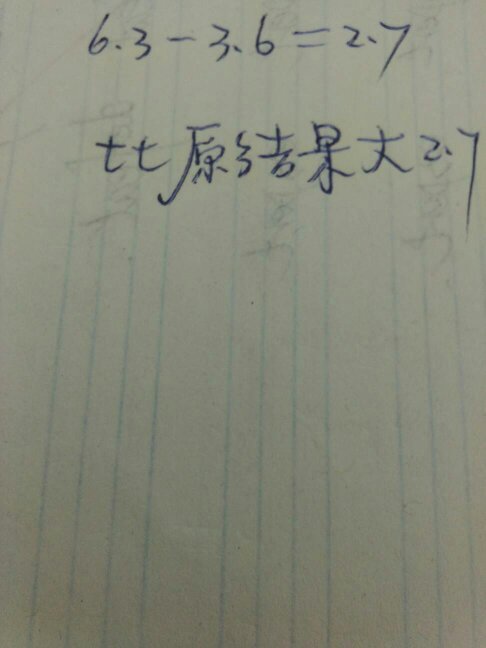 6.3-3.6=2.7
比原结果大2.7